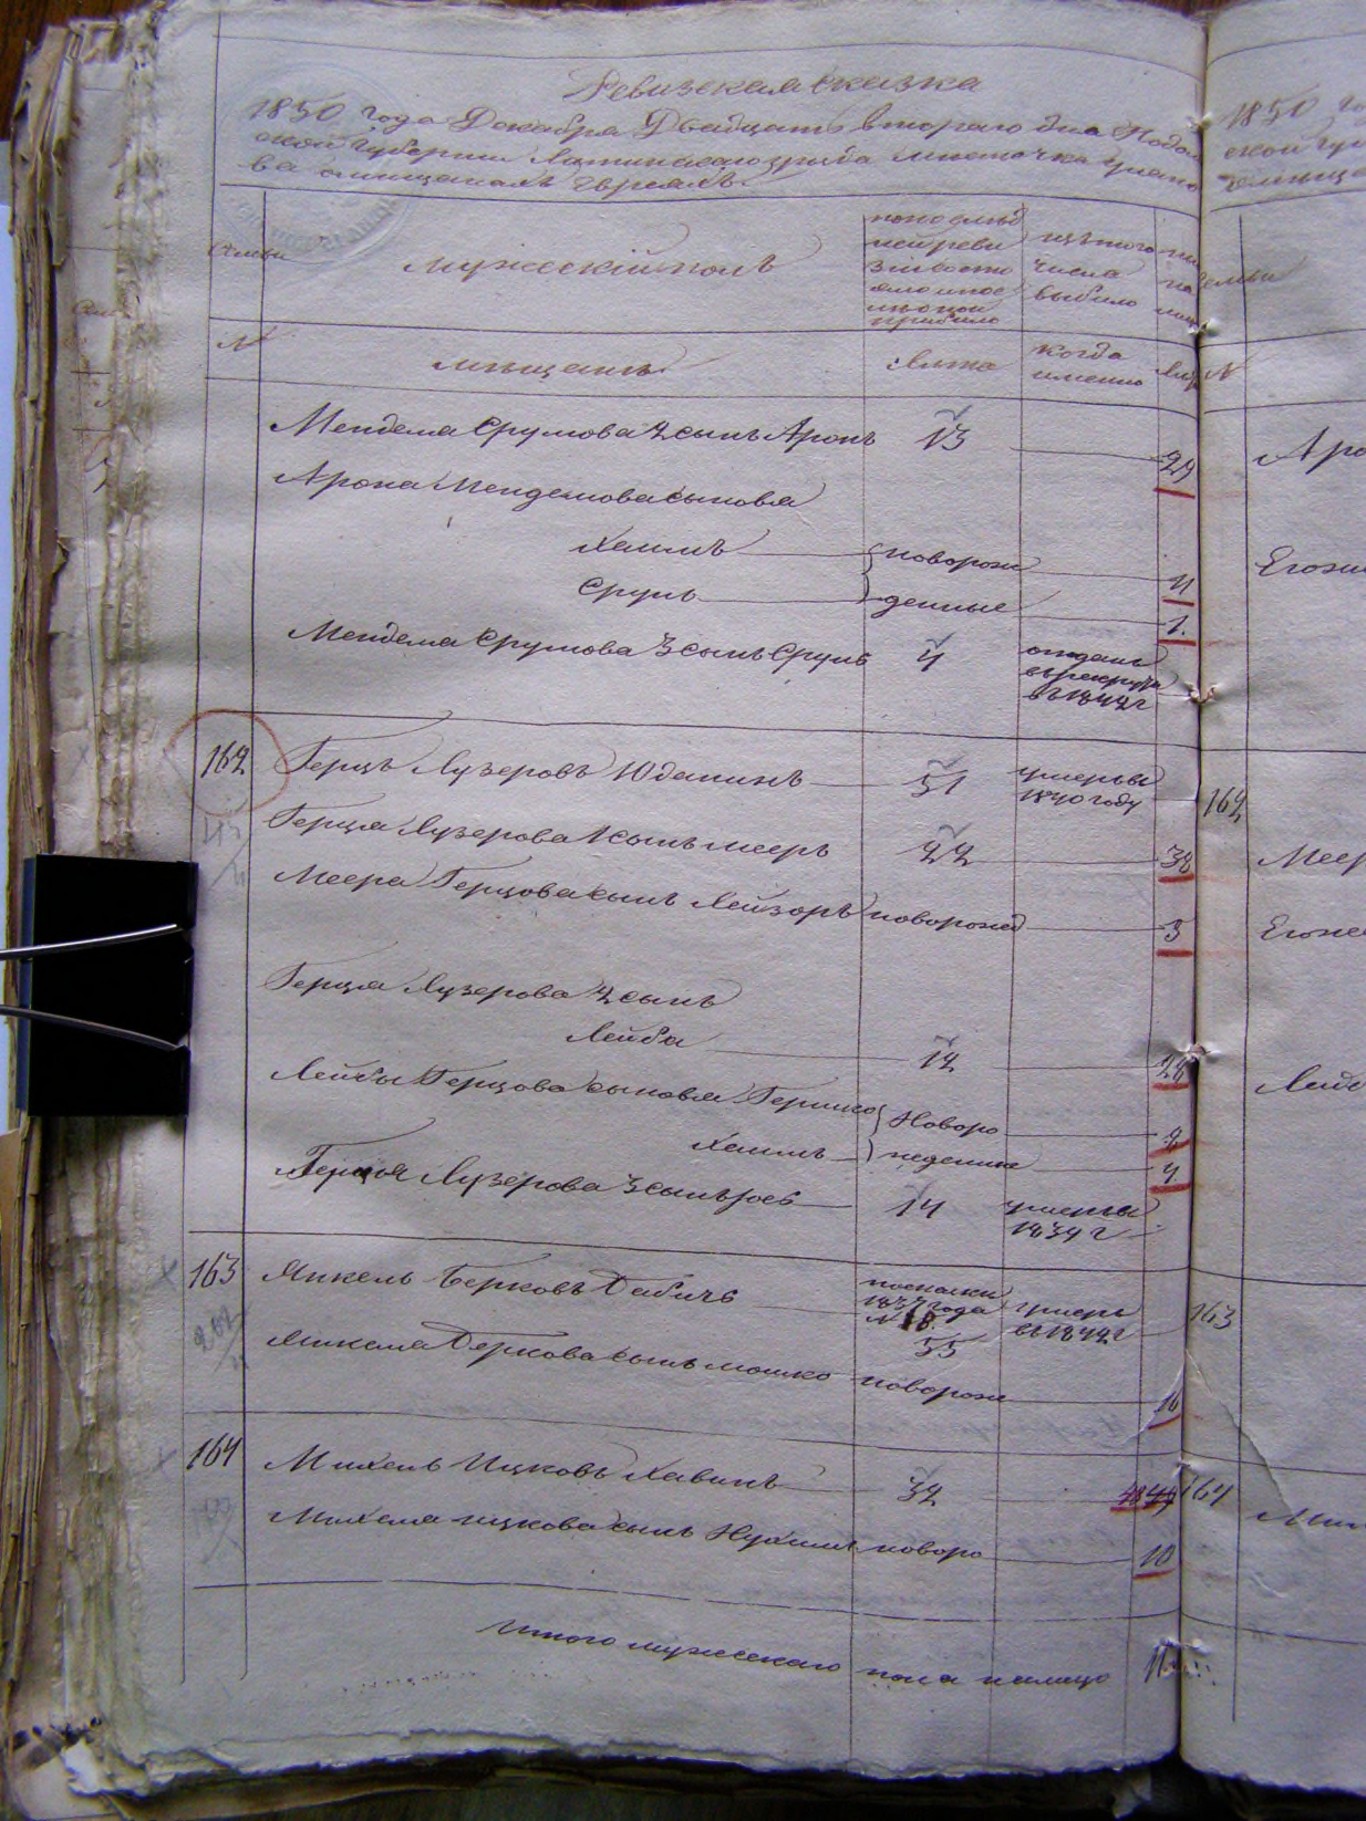 Ревизская сказка
1850 года Декабря Двадцать втораго дня Подоль
ской Губернии Ямпинскаго уезда местечка
ва о мещанахъ Евреяхъ.
Семьи
Мужескій полъ
по послед
ней реви
зіи состо
яло и после
оной
прибыло
изъ того
числа
выбыло
№
мещанъ
Лета
когда
именно
Лет
Менделя Срулова 2 сынъ Аронъ 13 29
Арона Менделова сыновья
Хаимъ новорож 4
Сруль денные 1.
Менделя Срулова 3 сынъ Сруль 4 отданъ
въ рекруты
въ 1844 г
162 Герцъ Лузеровъ Юданинъ 51 умеръ въ
1840 году
Герца Лузерова 1 сынъ Мееръ 22 38
Меера Герцова сынъ Лейзоръ новорожд 3
Герца Лузерова 2 сынъ
Лейба 12 28
Лейбы Герцова сыновья Гершко Новоро 8
Хаимъ жденные 4
Герца Лузерова 3 сынъ Іось 14 умеръ въ
1839 г
163 Янкель Берковъ Бабичъ по сказке
1837 года
№ 18.
55
умеръ
въ 1842 г
Янкеля Беркова сынъ Мошко новорож 16
164 Михель Ицковъ Хавинъ 32 48
Михеля Ицкова сынъ Нухимъ новоро 10
Итого мужескаго пола налицо 11
1850 го
ской гу
№
Аро
Егоже
162
Меер
Егоже
Лейб
163
164
Мих